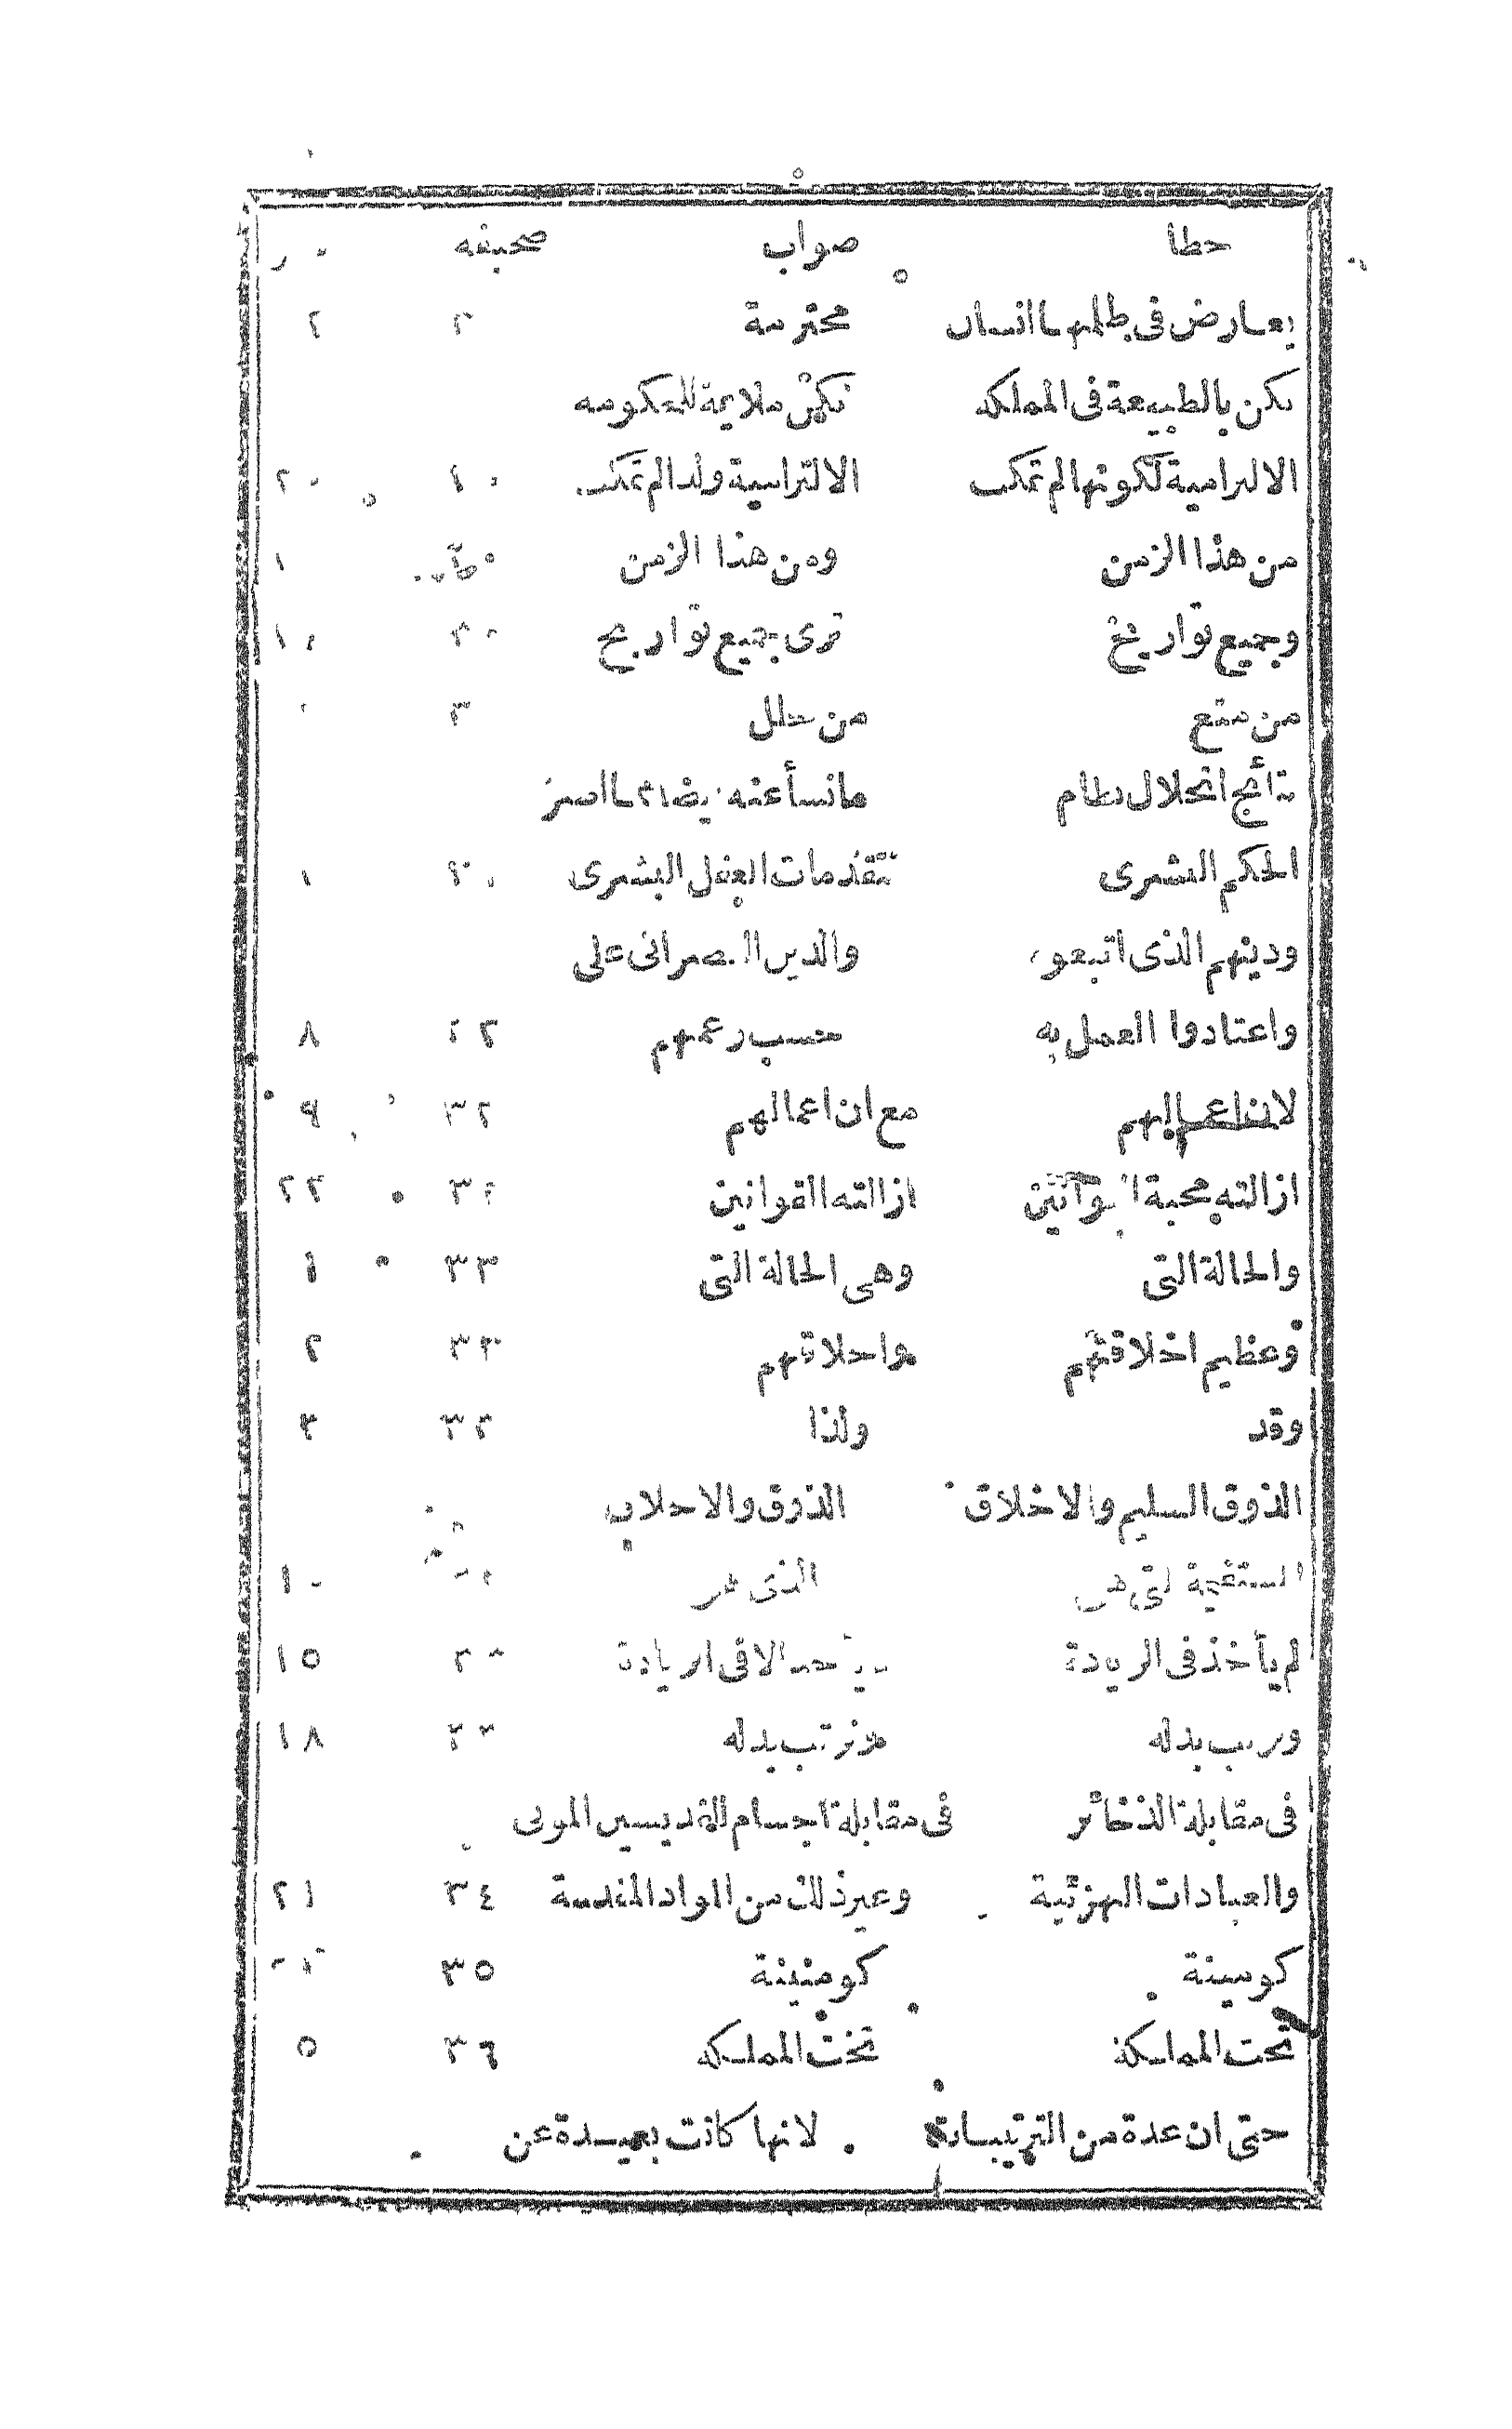 خطأ صواب صحيفه
يعارض في طلبها انسان محترمة ٢
يكن بالطبيعة فى المملكه تكن ملايمة للحكومه
الالتزامية لكونها لم تمكث الالتزامية ولذا لم تمكث
من هذا الزمن ومن هذا الزمن ١
وجميع تواريخ نرى جميع تواريخ
من منع من خلل ٣
نتائج انحلال نظام مانشأ عنه
الحكم البشرى تقدمات العقل البشرى
ودينهم الذى اتبعوه والدين النصرانى على
واعتادوا العمل به حسب زعمهم ٨
لان اعمالهم مع ان اعمالهم ٣٢ ٩
ازالته محبة القوانين ازالته القوانين ٢٢
والحالة التى وهى الحالة التى ٣٣ ١
وعظيم اخلاقهم واخلاقهم ٣٣ ٢
وقد ولذا ٣٣ ٣
الذوق السليم والاخلاق الذوق والاخلاق
المستقيمة التى هى الذى هو ١٠
لم يأخذ فى الزيادة الا فى الزيادة ١٥
ورتب بدله ترتب بدله ١٨
فى مقابلة الذخائر فى مقابلة اجسام القديسين الموتى
والعبادات الهزئية وغير ذلك من المواد المقدسة ٣٤ ٢١
كوسينة كومنينة ٣٥
تحت المملكة تخت المملكه ٣٦ ٥
حتى ان عدة من الترتيبات لانها كانت بعيدة عن